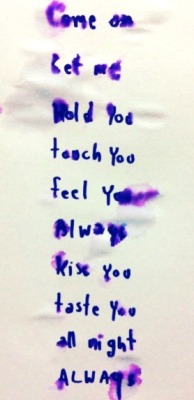 Come on
Let me
Hold You
touch You
feel You
Always
Kiss You
taste You
all night
ALWAYS